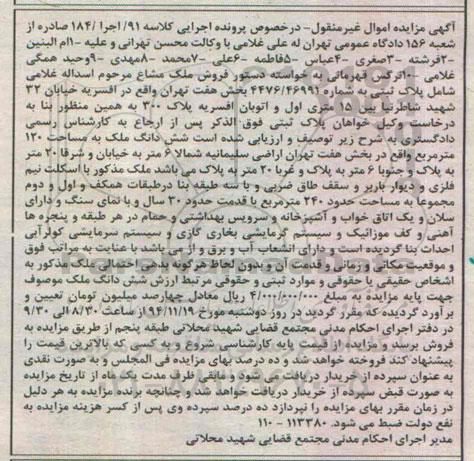 آگهی مزایده اموال غیرمنقول- درخصوص پرونده اجرایی کلاسه ۹۱/ اجرا /۱۸۴ صادره از
شعبه ۱۵۶ دادگاه عمومی تهران له علی غلامی با وکالت محسن تهرانی و علیه -۱ام البنین
-۲فرشته -۳صغری -۴عباس -۵فاطمه -۶علی -۷محمد -۸مهدی -۹وحید همگی
غلامی -۱۰نرگس قهرمانی به خواسته دستور فروش ملک مشاع مرحوم اسداله غلامی
شامل پلاک ثبتی به شماره ۴۴۷۶/۴۶۹۹۱ بخش هفت تهران واقع در افسریه خیابان ۳۲
شهید شاطرنیا بین ۱۵ متری اول و اتوبان افسریه پلاک ۳۰۰ به همین منظور بنا به
درخواست وکیل خواهان پلاک ثبتی فوق الذکر پس از ارجاع به کارشناس رسمی
دادگستری به شرح زیر توصیف و ارزیابی شده است شش دانگ ملک به مساحت ۱۲۰
مترمربع واقع در بخش هفت تهران اراضی سلیمانیه شمالا ۶ متر به خیابان و شرقا ۲۰ متر
به پلاک و جنوبا ۶ متر به پلاک و غربا ۲۰ متر به پلاک می باشد ملک مذکور با اسکلت نیم
فلزی و دیوار باربر و سقف طاق ضربی و با سه طبقه بنا درطبقات همکف و اول و دوم
مجموعا به مساحت حدود ۲۴۰ مترمربع با قدمت حدود ۳۰ سال و با نمای سنگ و دارای
سلان و یک اتاق خواب و آشپزخانه و سرویس بهداشتی و حمام در هر طبقه و پنجره ها
آهنی و کف موزائیک و سیستم گرمایشی بخاری گازی و سیستم سرمایشی کولرآبی
احداث بنا گردیده است و دارای انشعاب آب و برق و گاز می باشد با عنایت به مراتب فوق
و موقعیت مکانی و زمانی و قدمت آن و بدون لحاظ هرگونه بدهی احتمالی ملک مذکور به
اشخاص حقیقی یا حقوقی و موارد ثبتی و حقوقی مرتبط ارزش شش دانگ ملک موصوف
جهت پایه مزایده به مبلغ ۴/۰۰۰/۰۰۰/۰۰۰ ریال معادل چهارصد میلیون تومان تعیین و
برآورد گردیده که مقرر گردید در روز دوشنبه مورخ ۹۴/۱۱/۱۹ از ساعت ۸/۳۰ الی ۹/۳۰
در دفتر اجرای احکام مدنی مجتمع قضایی شهید محلاتی طبقه پنجم از طریق مزایده به
فروش برسد و مزایده از قیمت پایه کارشناسی شروع و به کسی که بالاترین قیمت را
پیشنهاد کند فروخته خواهد شد و ده درصد بهای مزایده فی المجلس و به صورت نقدی
به عنوان سپرده از خریدار دریافت می شود و مابقی ظرف مدت یک ماه از تاریخ مزایده
به صورت قبض سپرده از خریدار دریافت خواهد شد و چنانچه برنده مزایده به هر دلیل
در زمان مقرر بهای مزایده را نپردازد ده درصد سپرده وی پس از کسر هزینه مزایده به
نفع دولت ضبط می شود. ۱۱۳۳۸۰ - ۱۱۰
مدیر اجرای احکام مدنی مجتمع قضایی شهید محلاتی